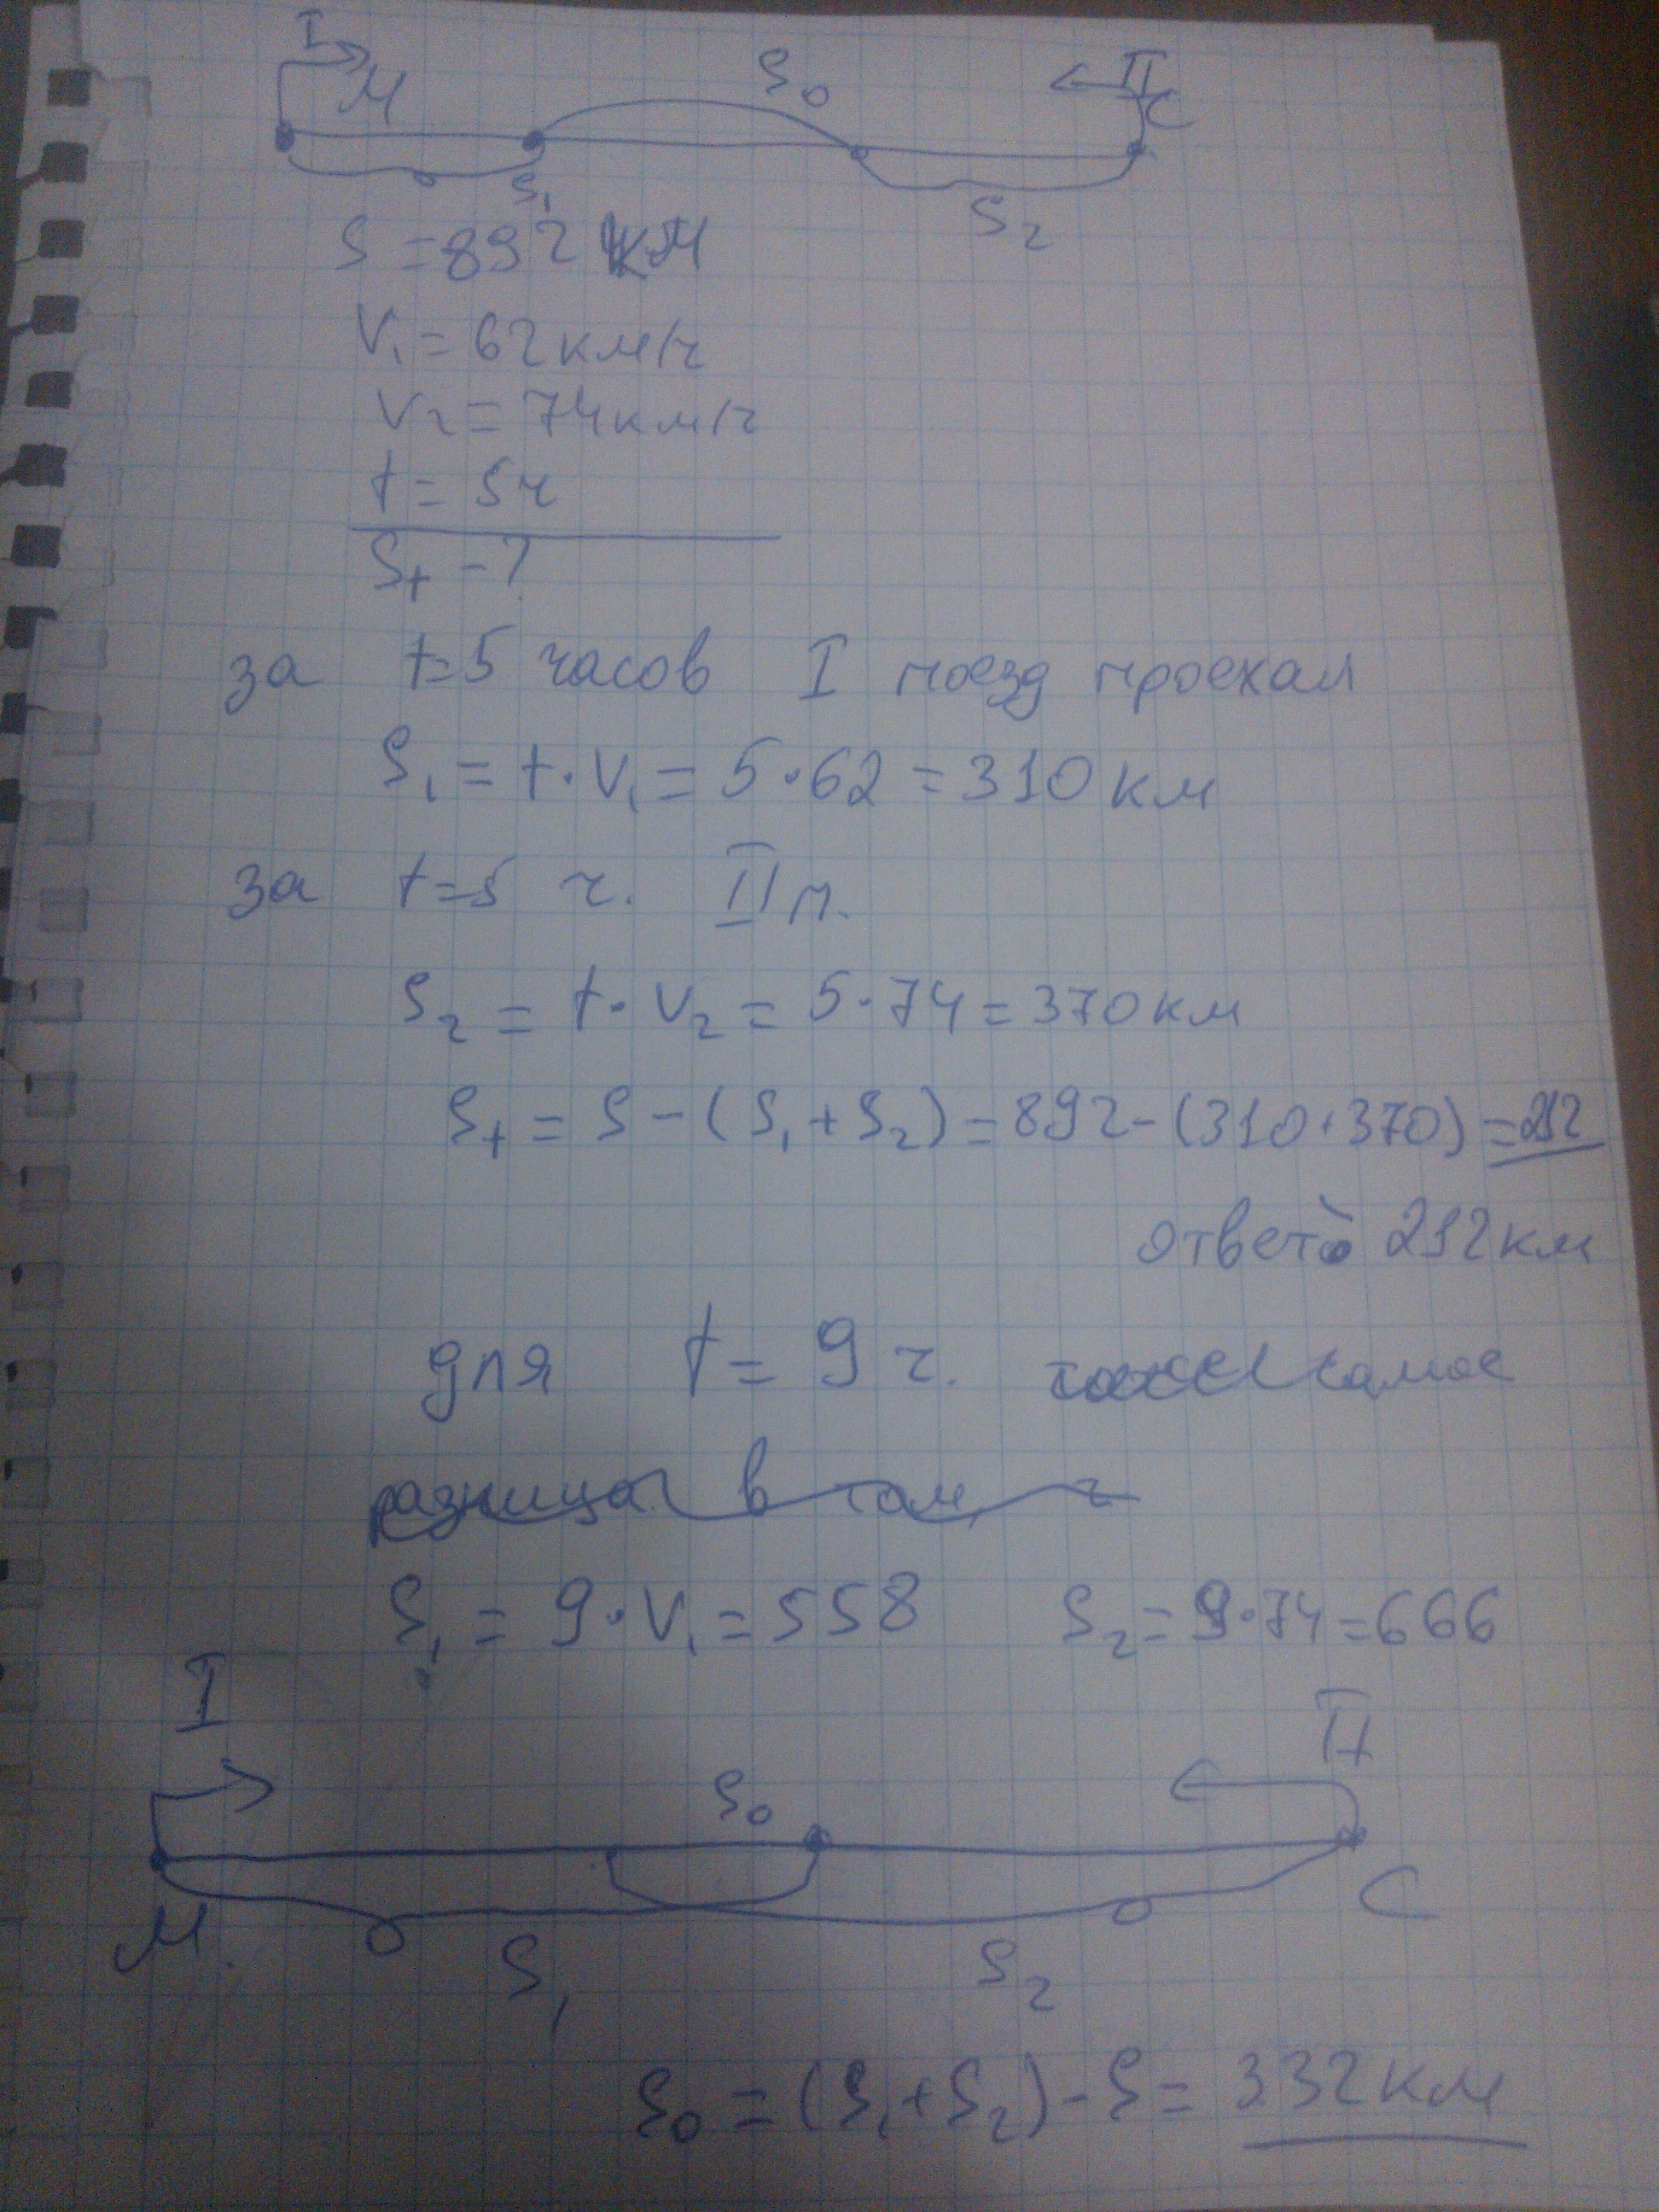 I II
M S₀ C
S₁ S₂
S = 892 км
V₁ = 62 км/ч
V₂ = 74 км/ч
t = 5ч
St - ?
за t=5 часов I поезд проехал
S₁ = t · V₁ = 5 · 62 = 310 км
за t=5 ч. II п.
S₂ = t · V₂ = 5 · 74 = 370 км
St = S - (S₁ + S₂) = 892 - (310 + 370) = 212
ответ: 212 км
для t = 9 ч. тоже самое
разница в том, ч
S₁ = 9 · V₁ = 558 S₂ = 9 · 74 = 666
I II
S₀
M C
S₁ S₂
S₀ = (S₁ + S₂) - S = 332 км